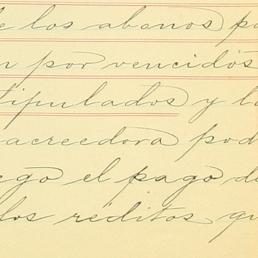 e los abonos pa
n por vencidos
tipulados y la
acreedora pod
ego el pago de
los réditos qu